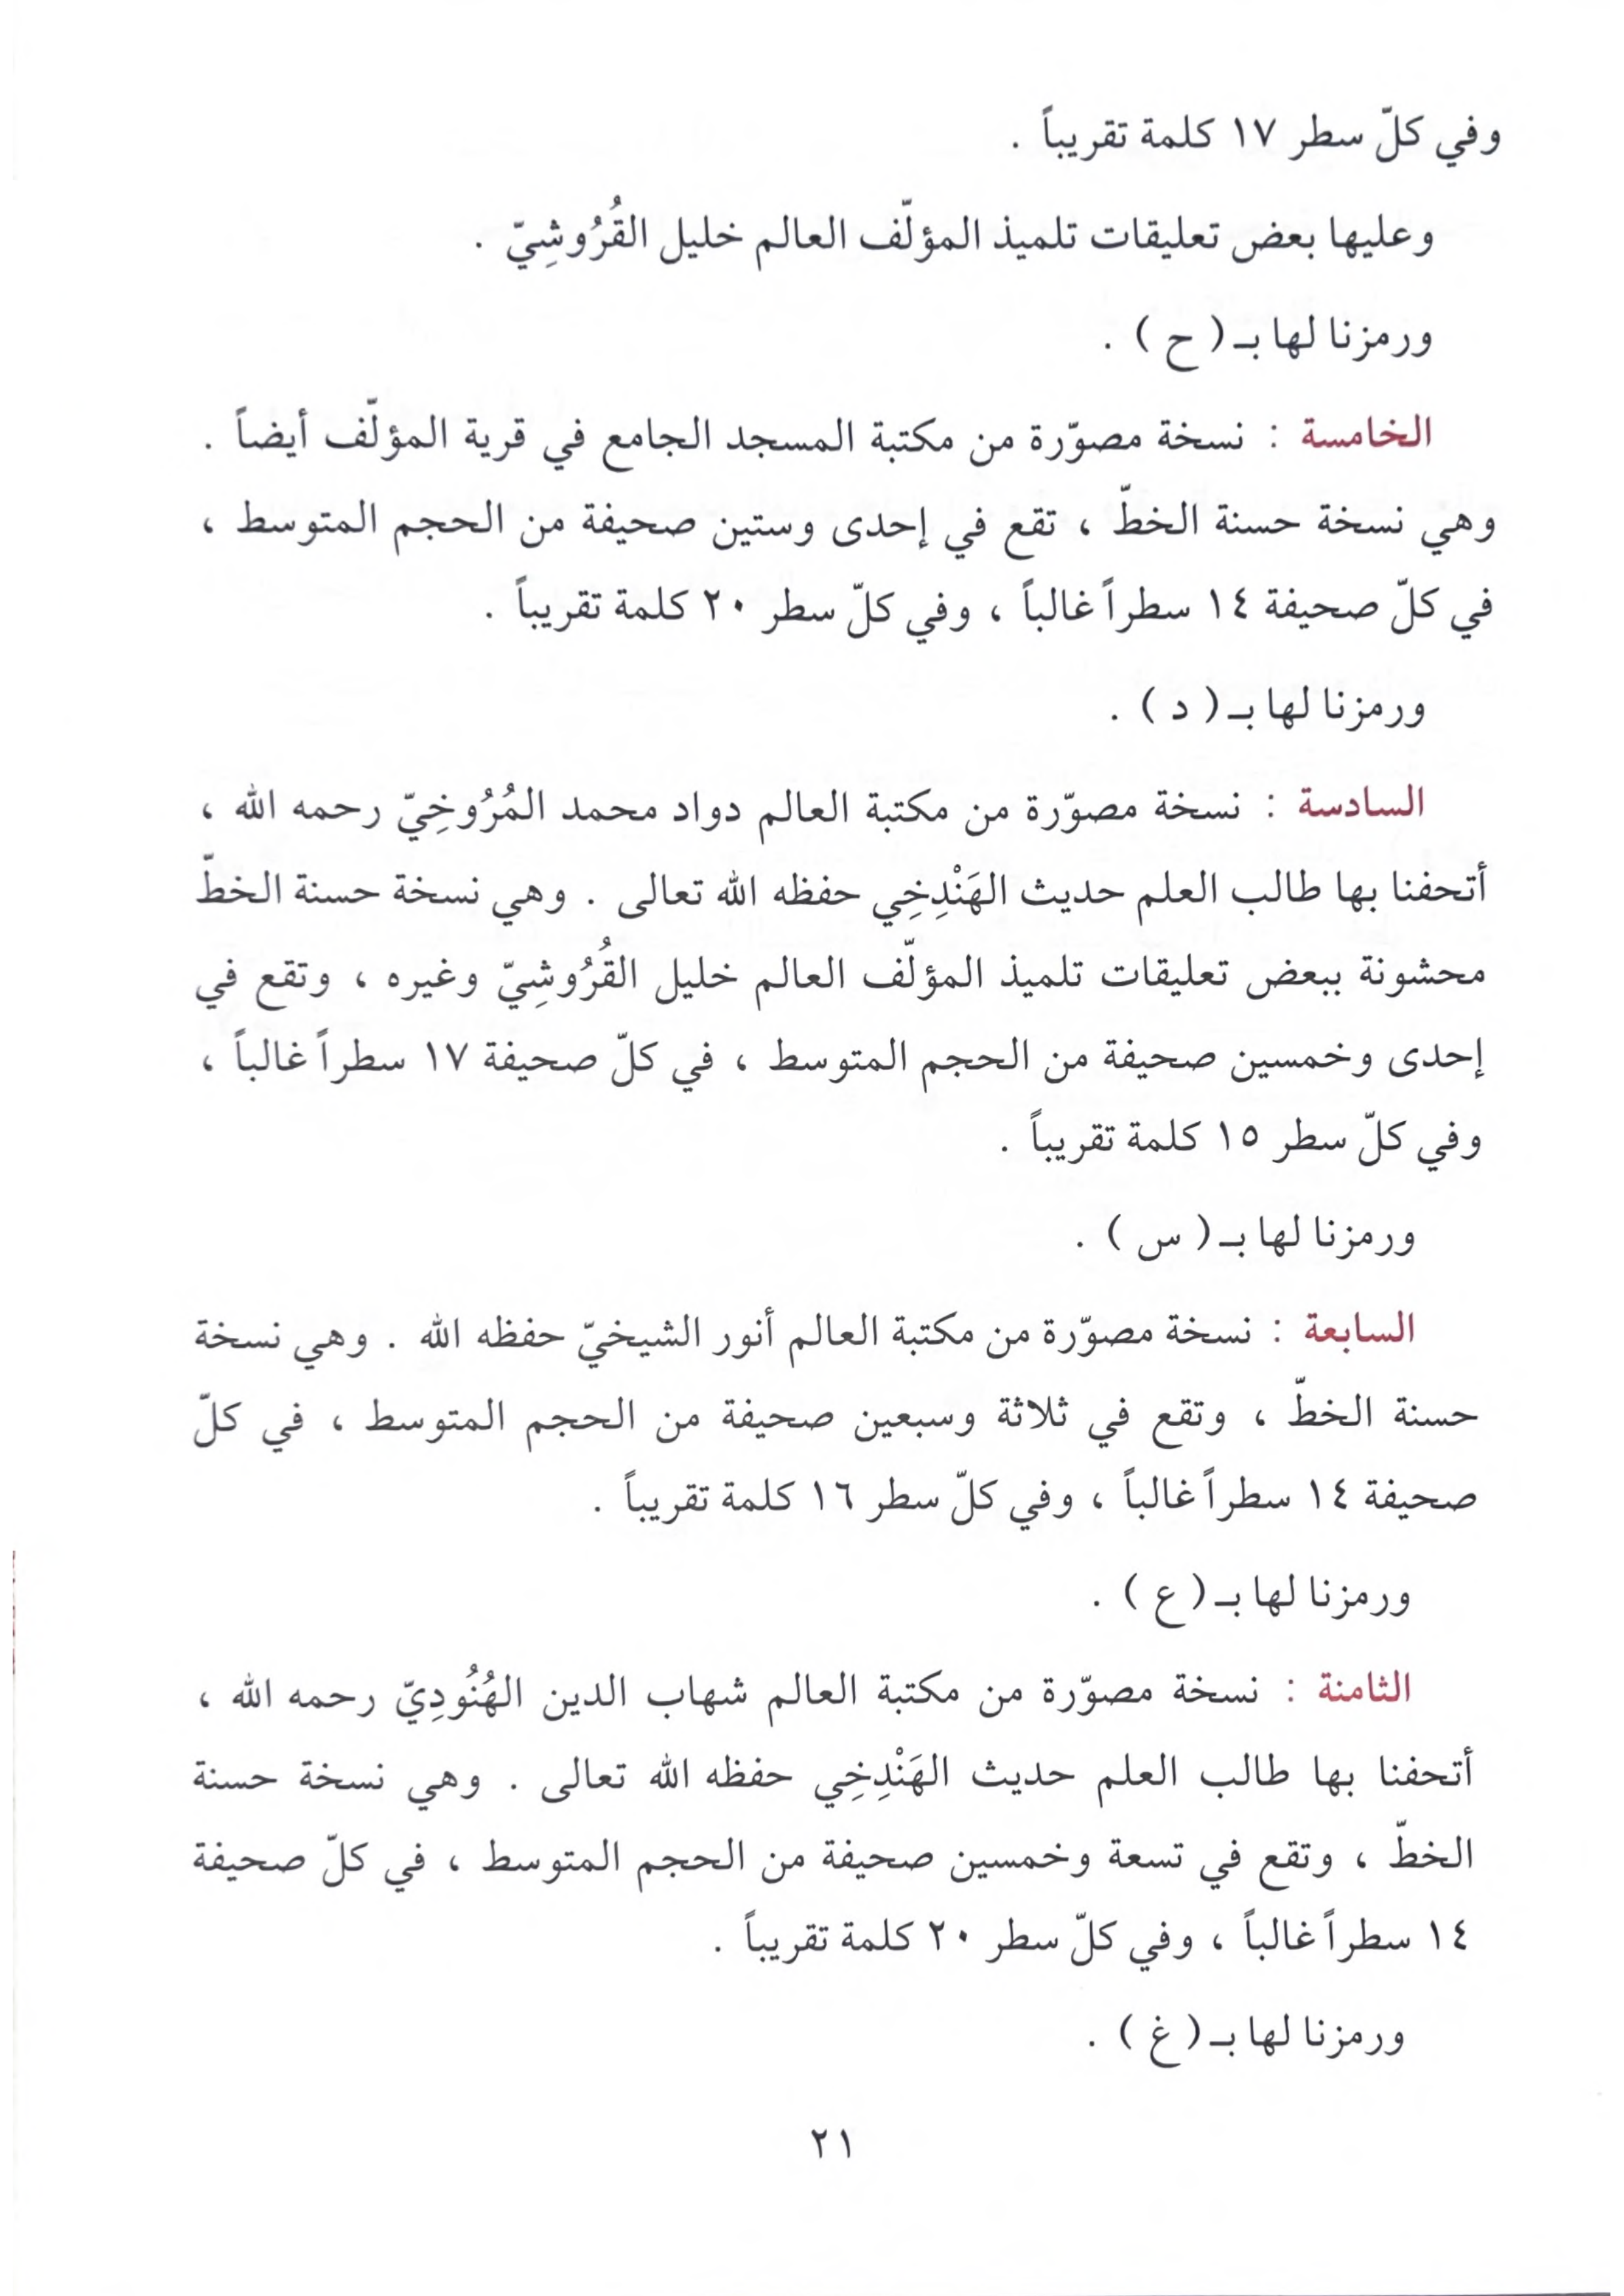 وفي كلّ سطر ١٧ كلمة تقريباً .
وعليها بعض تعليقات تلميذ المؤلّف العالم خليل القُرُوشِيّ .
ورمزنا لها بـ ( ح ) .
الخامسة : نسخة مصوّرة من مكتبة المسجد الجامع في قرية المؤلّف أيضاً .
وهي نسخة حسنة الخطّ ، تقع في إحدى وستين صحيفة من الحجم المتوسط ،
في كلّ صحيفة ١٤ سطراً غالباً ، وفي كلّ سطر ٢٠ كلمة تقريباً .
ورمزنا لها بـ ( د ) .
السادسة : نسخة مصوّرة من مكتبة العالم دواد محمد المُرُوخِيّ رحمه الله ،
أتحفنا بها طالب العلم حديث الهَنْدِخِي حفظه الله تعالى . وهي نسخة حسنة الخطّ
محشونة ببعض تعليقات تلميذ المؤلّف العالم خليل القُرُوشِيّ وغيره ، وتقع في
إحدى وخمسين صحيفة من الحجم المتوسط ، في كلّ صحيفة ١٧ سطراً غالباً ،
وفي كلّ سطر ١٥ كلمة تقريباً .
ورمزنا لها بـ ( س ) .
السابعة : نسخة مصوّرة من مكتبة العالم أنور الشيخيّ حفظه الله . وهي نسخة
حسنة الخطّ ، وتقع في ثلاثة وسبعين صحيفة من الحجم المتوسط ، في كلّ
صحيفة ١٤ سطراً غالباً ، وفي كلّ سطر ١٦ كلمة تقريباً .
ورمزنا لها بـ ( ع ) .
الثامنة : نسخة مصوّرة من مكتبة العالم شهاب الدين الهُنُودِيّ رحمه الله ،
أتحفنا بها طالب العلم حديث الهَنْدِخِي حفظه الله تعالى . وهي نسخة حسنة
الخطّ ، وتقع في تسعة وخمسين صحيفة من الحجم المتوسط ، في كلّ صحيفة
١٤ سطراً غالباً ، وفي كلّ سطر ٢٠ كلمة تقريباً .
ورمزنا لها بـ ( غ ) .
٢١